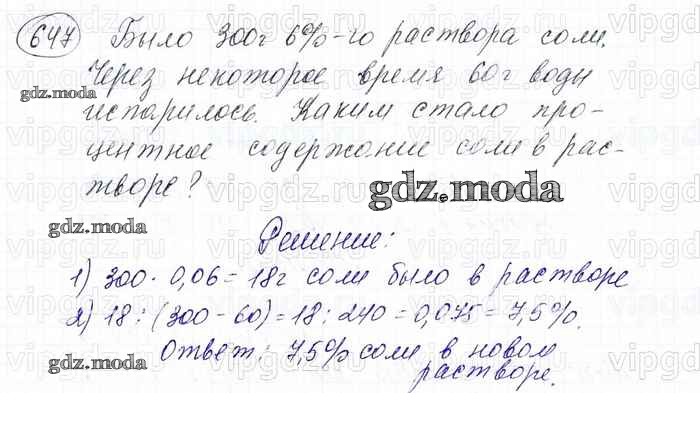 647 Было 300г 6%-го раствора соли.
Через некоторое время 60г воды
gdz.moda
испарилось. Каким стало про-
центное содержание соли в рас-
творе?
gdz.moda
gdz.moda
Решение:
1) 300 · 0,06 = 18г соли было в растворе
2) 18 : (300 - 60) = 18 : 240 = 0,075 = 7,5%.
Ответ: 7,5% соли в новом
gdz.moda
растворе.